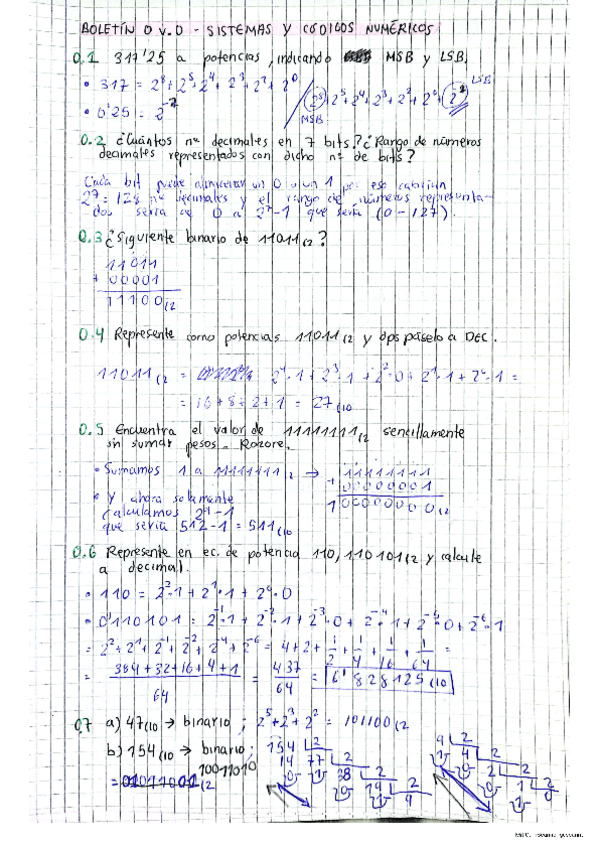 BOLETÍN 0 v.0 - SISTEMAS Y CÓDIGOS NUMÉRICOS
0.1 317'25 a potencias, indicando MSB y LSB.
• 317 = 2⁸+2⁵+2⁴+2³+2²+2⁰
• 0'25 = 2⁻²
2⁸+2⁵+2⁴+2³+2²+2⁰+2⁻²
MSB
LSB
0.2 ¿Cuántos nº decimales en 7 bits? ¿Rango de números
decimales representados con dicho nº de bits?
Cada bit puede almacenar un 0 o un 1 por eso cabrían
2⁷ = 128 nº decimales y el rango de números representa-
dos sería de 0 a 2⁷-1 que sería (0-127).
0.3 ¿Siguiente binario de 11011₍₂?
11011
+ 00001
11100₍₂
0.4 Represente como potencias 11011₍₂ y dps páselo a DEC.
11011₍₂ = 2⁴·1+2³·1+2²·0+2¹·1+2⁰·1 =
= 16+8+2+1 = 27₍₁₀
0.5 Encuentra el valor de 11111111₍₂ sencillamente
sin sumar pesos. Razone.
• Sumamos 1 a 11111111₍₂ → 11111111
+ 00000001
100000000₍₂
• Y ahora solamente
calculamos 2⁹-1
que sería 512-1 = 511₍₁₀
0.6 Represente en ec. de potencia 110,110101₍₂ y calcule
a decimal.
• 110 = 2²·1+2¹·1+2⁰·0
• 0'110101 = 2⁻¹·1+2⁻²·1+2⁻³·0+2⁻⁴·1+2⁻⁵·0+2⁻⁶·1
= 2²+2¹+2⁻¹+2⁻²+2⁻⁴+2⁻⁶ = 4+2+1/2+1/4+1/16+1/64 =
= 384+32+16+4+1/64 = 437/64 = 6'828125₍₁₀
0.7 a) 47₍₁₀ → binario; 2⁵+2³+2² = 101100₍₂
b) 154₍₁₀ → binario;
10011010
154 2
14 77 2
0 1 38 2
0 19 2
1 9
9 2
1 4 2
0 2 2
0 1 2
1 0